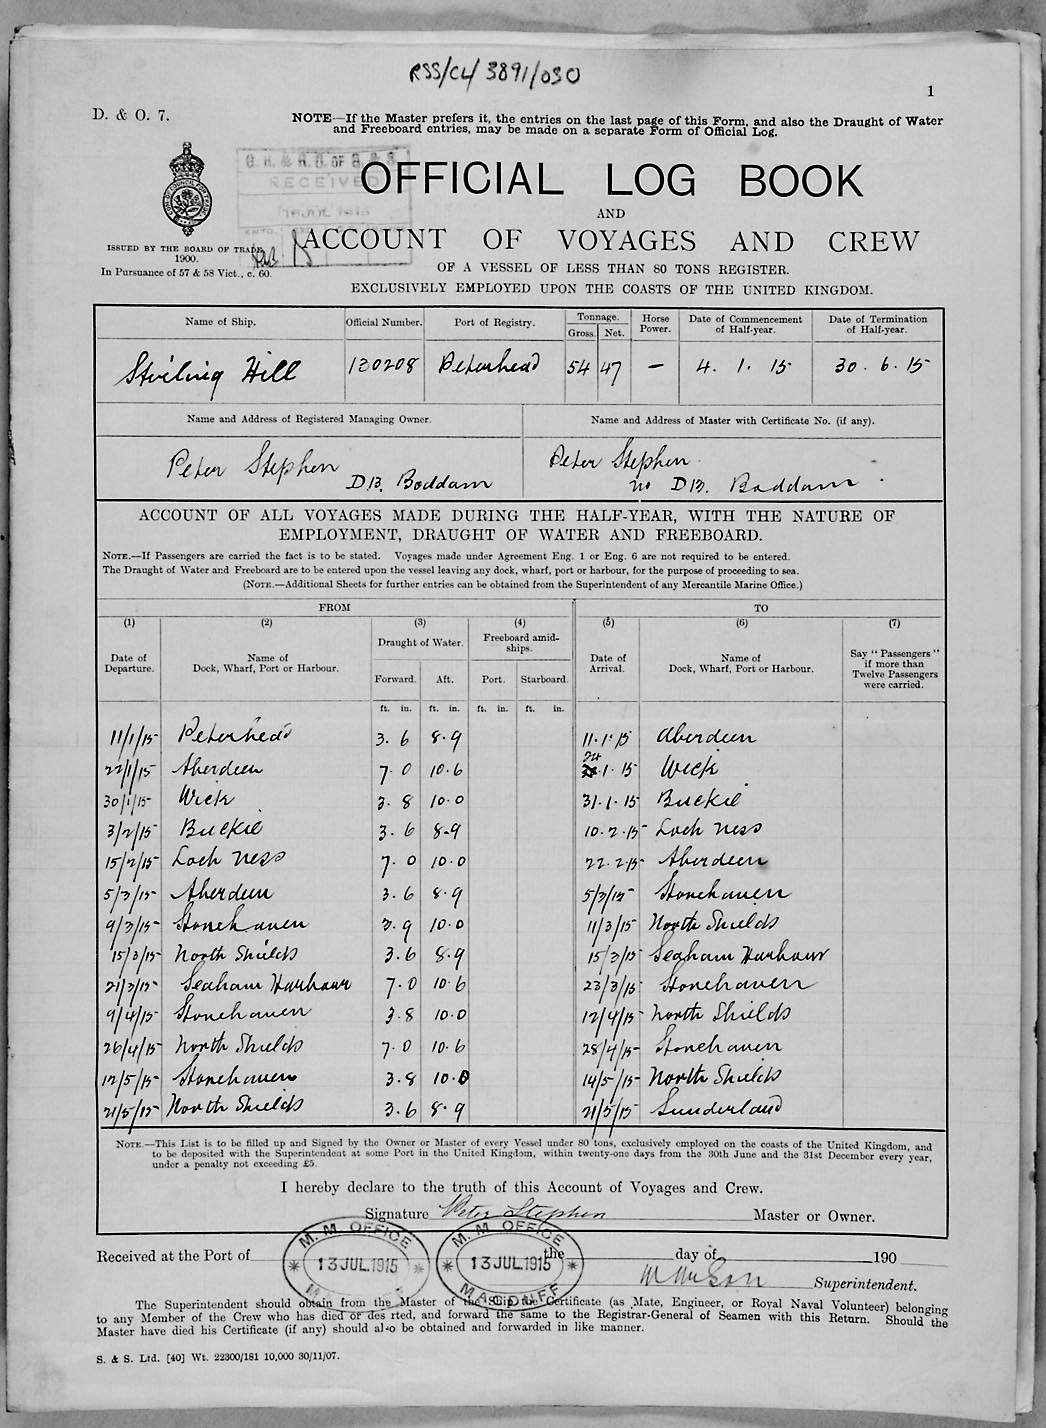 RSS/CL/3891/030
1
D. & O. 7.
NOTE—If the Master prefers it, the entries on the last page of this Form, and also the Draught of Water
and Freeboard entries, may be made on a separate Form of Official Log.
RECEIVED
OFFICIAL LOG BOOK
AND
ISSUED BY THE BOARD OF TRADE,
1900.
In Pursuance of 57 & 58 Vict., c. 60.
ACCOUNT OF VOYAGES AND CREW
OF A VESSEL OF LESS THAN 80 TONS REGISTER.
EXCLUSIVELY EMPLOYED UPON THE COASTS OF THE UNITED KINGDOM.
Name of Ship. Official Number. Port of Registry. Tonnage. Gross. Net. Horse Power. Date of Commencement of Half-year. Date of Termination of Half-year.
Stirling Hill 130208 Peterhead 54 47 — 4. 1. 15 30. 6. 15
Name and Address of Registered Managing Owner. Name and Address of Master with Certificate No. (if any).
Peter Stephen Peter Stephen
DB. Boddam no DB. Boddam.
ACCOUNT OF ALL VOYAGES MADE DURING THE HALF-YEAR, WITH THE NATURE OF
EMPLOYMENT, DRAUGHT OF WATER AND FREEBOARD.
NOTE.—If Passengers are carried the fact is to be stated. Voyages made under Agreement Eng. 1 or Eng. 6 are not required to be entered.
The Draught of Water and Freeboard are to be entered upon the vessel leaving any dock, wharf, port or harbour, for the purpose of proceeding to sea.
(NOTE.—Additional Sheets for further entries can be obtained from the Superintendent of any Mercantile Marine Office.)
FROM TO
(1) (2) (3) (4) (5) (6) (7)
Date of Departure. Name of Dock, Wharf, Port or Harbour. Draught of Water. Forward. Aft. Freeboard amid-ships. Port. Starboard. Date of Arrival. Name of Dock, Wharf, Port or Harbour. Say "Passengers" if more than Twelve Passengers were carried.
ft. in. ft. in. ft. in. ft. in.
11/1/15 Peterhead 3. 6 8.9 11.1.15 Aberdeen
22/1/15 Aberdeen 7. 0 10.6 24.1.15 Wick
30/1/15 Wick 3. 8 10.0 31.1.15 Buckie
3/2/15 Buckie 3. 6 8.9 10.2.15 Loch Ness
15/2/15 Loch Ness 7. 0 10.0 22.2.15 Aberdeen
5/3/15 Aberdeen 3. 6 8.9 5/3/15 Stonehaven
9/3/15 Stonehaven 3.9 10.0 11/3/15 North Shields
15/3/15 North Shields 3.6 8.9 15/3/15 Seaham Harbour
21/3/15 Seaham Harbour 7.0 10.6 23/3/15 Stonehaven
9/4/15 Stonehaven 3.8 10.0 12/4/15 North Shields
26/4/15 North Shields 7.0 10.6 28/4/15 Stonehaven
12/5/15 Stonehaven 3.8 10.0 14/5/15 North Shields
21/5/15 North Shields 3.6 8.9 21/5/15 Sunderland
NOTE.—This List is to be filled up and Signed by the Owner or Master of every Vessel under 80 tons, exclusively employed on the coasts of the United Kingdom, and
to be deposited with the Superintendent at some Port in the United Kingdom, within twenty-one days from the 30th June and the 31st December every year,
under a penalty not exceeding £5.
I hereby declare to the truth of this Account of Voyages and Crew.
Signature Peter Stephen Master or Owner.
Received at the Port of the day of 190
M. M. OFFICE 13 JUL.1915 MACDUFF
M. M. OFFICE 13 JUL.1915 MACDUFF
Superintendent.
The Superintendent should obtain from the Master of the Ship the Certificate (as Mate, Engineer, or Royal Naval Volunteer) belonging
to any Member of the Crew who has died or des rted, and forward the same to the Registrar-General of Seamen with this Return. Should the
Master have died his Certificate (if any) should also be obtained and forwarded in like manner.
S. & S. Ltd. [40] Wt. 22300/181 10,000 30/11/07.